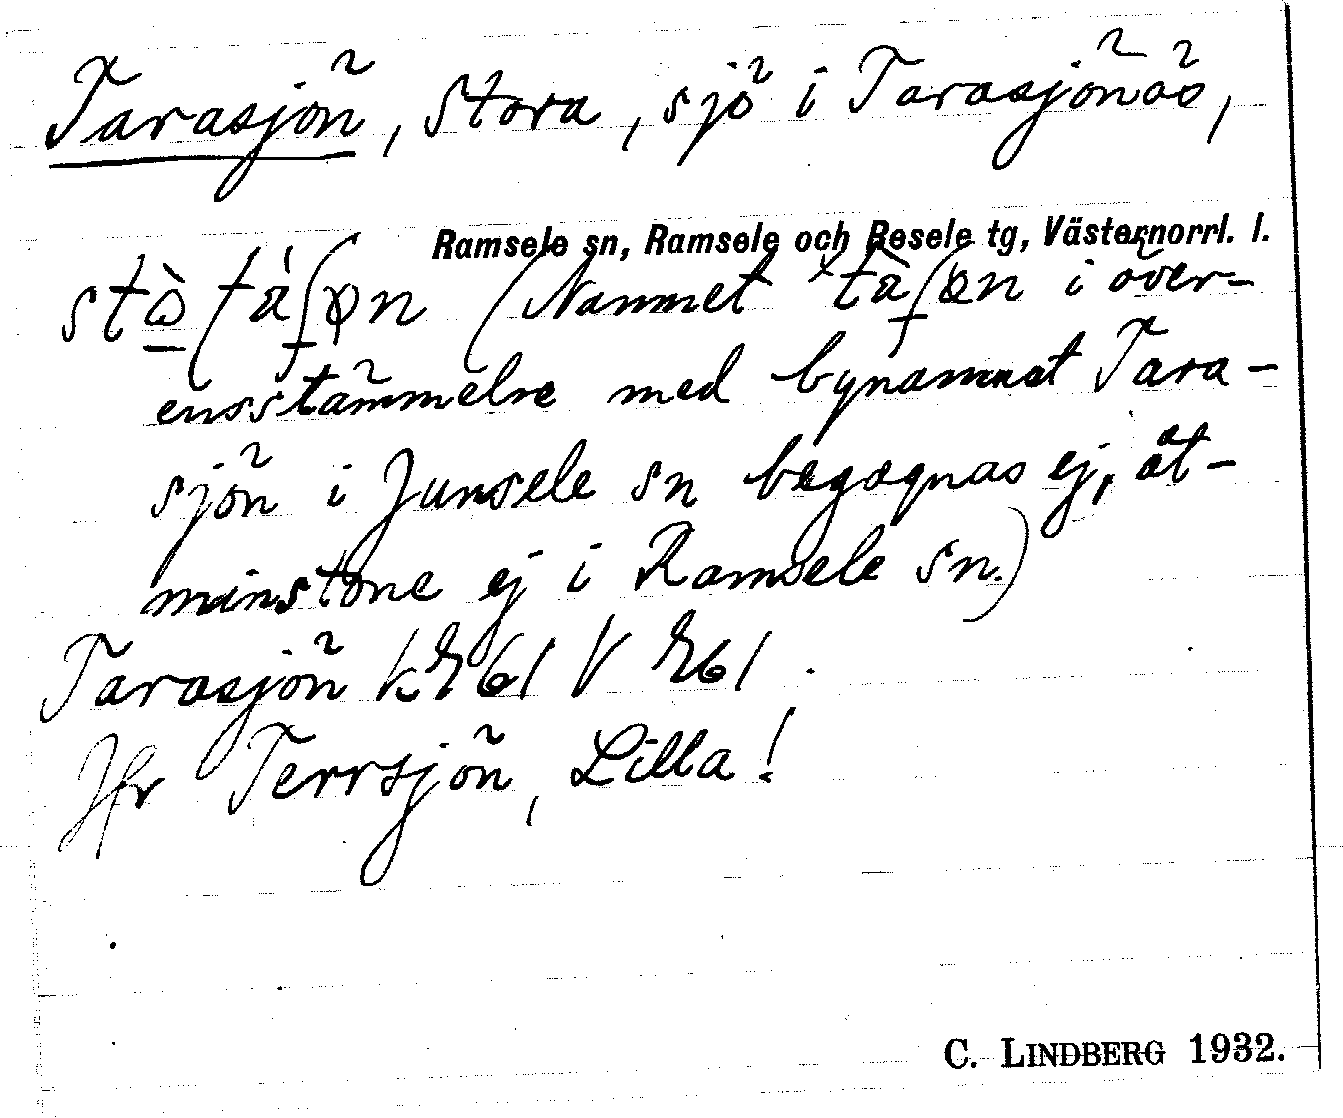 Tarasjön, Stora, sjö i Tarasjönäs,
Ramsele sn, Ramsele och Resele tg, Västernorrl. l.
(Namnet i över-
ensstämmelse med bynamnet Tara-
sjön i Junsele sn begagnas ej, åt-
minstone ej i Ramsele sn.)
Tarasjön
Jfr Terrsjön, Lilla!
C. LINDBERG 1932.